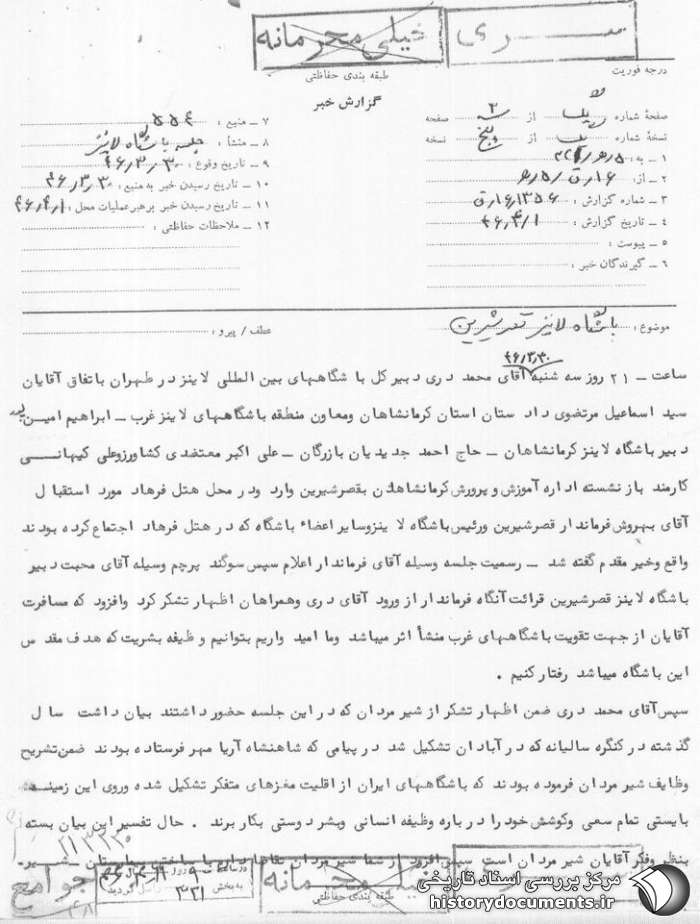 سری
خیلی محرمانه
طبقه بندی حفاظتی
درجه فوریت
گزارش خبر
صفحهٔ شماره یک از ۲ صفحه
نسخهٔ شماره یک از پنج نسخه
۱ ـ به :
۲ ـ از : ۱۶ ق / ۵ ر ه
۳ ـ شماره گزارش : ۱۳۵۶ ر ۱۶ ق
۴ ـ تاریخ گزارش : ۴۶/۴/۱
۵ ـ پیوست :
۶ ـ گیرندگان خبر :
۷ ـ منبع : ۵۵۴
۸ ـ منشأ : جلسه باشگاه لاینز
۹ ـ تاریخ وقوع : ۴۶/۳/۳۰
۱۰ ـ تاریخ رسیدن خبر به منبع : ۴۶/۳/۳۰
۱۱ ـ تاریخ رسیدن خبر برهبر عملیات محل : ۴۶/۴/۱
۱۲ ـ ملاحظات حفاظتی :
موضوع : باشگاه لاینز قصرشیرین
عطف / پیرو :
۴۶/۳/۳۰
ساعت ـ ۲۱ روز سه شنبه آقای محمد دری دبیر کل باشگاههای بین المللی لاینز در طهران باتفاق آقایان
سید اسماعیل مرتضوی داد ستان استان کرمانشاهان ومعاون منطقه باشگاههای لاینز غرب ـ ابراهیم امین پور
دبیر باشگاه لاینز کرمانشاهان ـ حاج احمد جدیدیان بازرگان ـ علی اکبر معتضدی کشاورزوعلی کیهانی
کارمند بازنشسته اداره آموزش و پرورش کرمانشاهان بقصرشیرین وارد ودر محل هتل فرهاد مورد استقبال
آقای بهروش فرماندار قصرشیرین ورئیس باشگاه لاینزوسایر اعضاء باشگاه که در هتل فرهاد اجتماع کرده بودند
واقع وخیر مقدم گفته شد ـ رسمیت جلسه وسیله آقای فرماندار اعلام سپس سوگند پرچم وسیله آقای محبت دبیر
باشگاه لاینز قصرشیرین قرائت آنگاه فرماندار از ورود آقای دری وهمراهان اظهار تشکر کرد وافزود که مسافرت
آقایان از جهت تقویت باشگاههای غرب منشأ اثر میباشد وما امید واریم بتوانیم و ظیفه بشریت که هدف مقد س
این باشگاه میباشد رفتار کنیم .
سپس آقای محمد دری ضمن اظهار تشکر از شیر مردان که در این جلسه حضور داشتند بیان داشت سال
گذشته در کنگره سالیانه که در آبادان تشکیل شد در پیامی که شاهنشاه آریا مهر فرستاده بودند ضمن تشریح
وظایف شیر مردان فرموده بودند که باشگاههای ایران از اقلیت مغزهای متفکر تشکیل شده وروی این زمینه
بایستی تمام سعی وکوشش خودرا درباره وظیفه انسانی وبشر دوستی بکار برند . حال تفسیر این بیان بسته
بنظر وفکر آقایان شیر مردان است سپس افزود از شما شیر مردان تقاضا دارم با ساختن بیمارستان ـ شیر
خیلی محرمانه
طبقه بندی حفاظتی
جوامع
مرکز بررسی اسناد تاریخی
historydocuments.ir